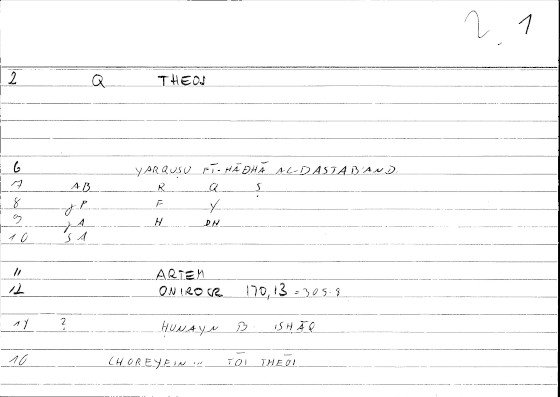 2. 1
2 Q THEOS
6 YARQUṢU FĪ-HĀḎHĀ AL-DASTABAND
7 AB R Q Ṣ
8 P F Y
9 A H DH
10 SA
11 ARTEM
12 ONIROCR 170,13 = 309.9
14 ? HUNAYN B ISHĀQ
16 CHOREYEIN... TŌI THEŌI